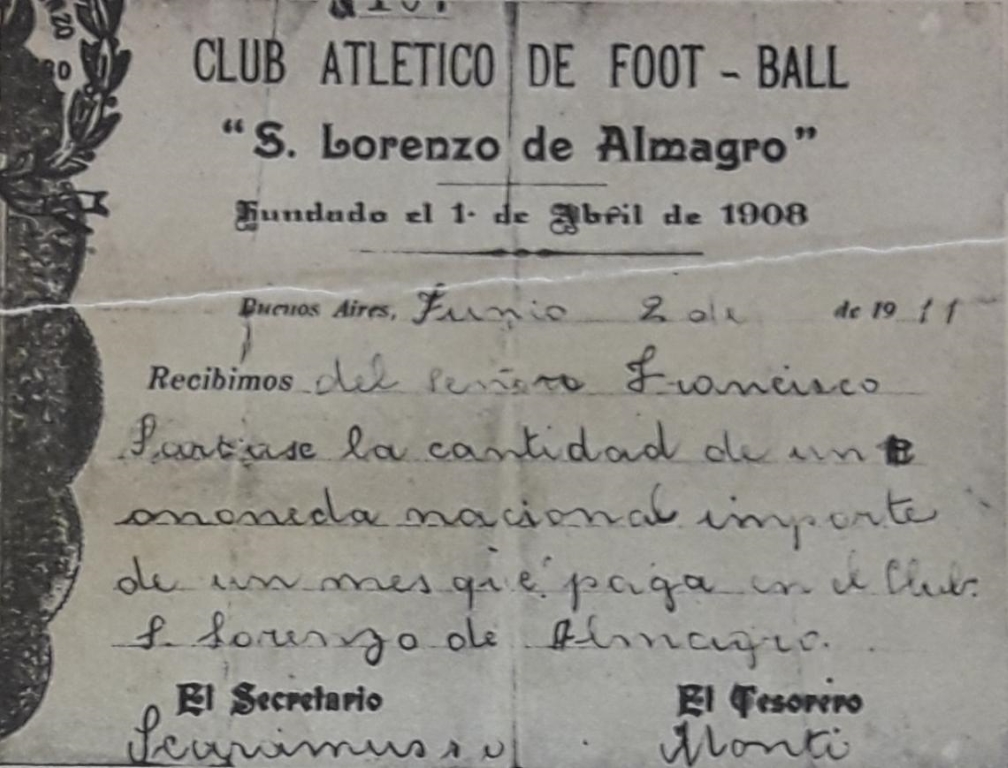 CLUB ATLETICO DE FOOT - BALL
"S. Lorenzo de Almagro"
Fundado el 1· de Abril de 1908
Buenos Aires, Junio 2 de de 1911
Recibimos del señoro Francisco
la cantidad de un
moneda nacional importe
de un mes que paga en el Club.
S. Lorenzo de Almagro.
El Secretario El Tesorero
Scaramusso Monti